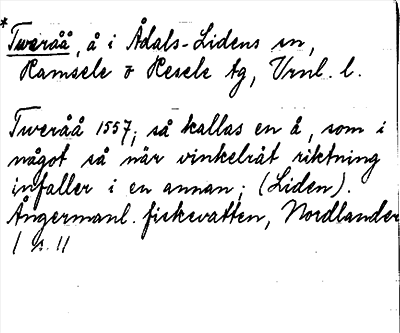 *Tweråå, å i Ådals-Lidens sn,
Ramsele o Resele tg, Vrnl. l.
Tweråå 1557; så kallas en å, som i
något så när vinkelråt riktning
infaller i en annan; (Liden).
Ångermanl. fiskevatten, Nordlander
1 s. 11